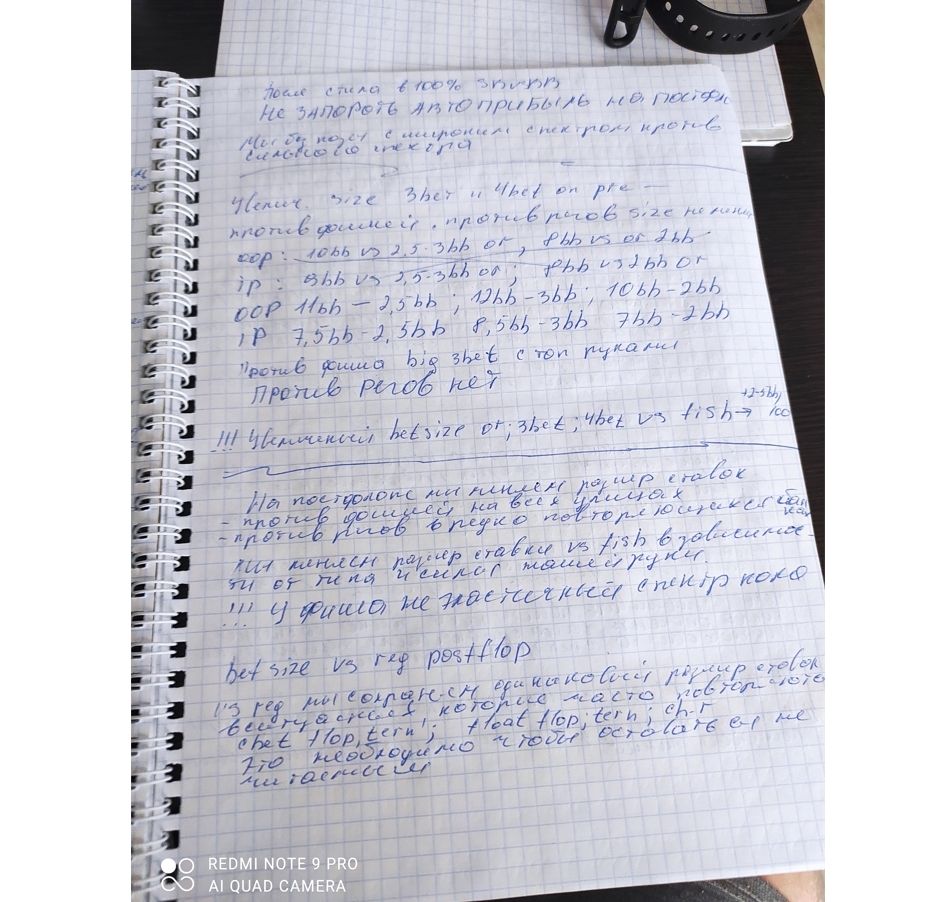 После стила в 100% SBvsBB
НЕ ЗАПОРОТЬ АВТОПРИБЫЛЬ НА ПОСТФЛ
Мы бу позы с широким спектром против
сильного спектра
Увелич. size 3bet и 4bet on pre —
против фишей, против регов size не меня
oop: 10bb vs 2,5-3bb or, 8bb vs or 2bb
ip: 9bb vs 2,5-3bb or; 8bb vs 2bb or
OOP 11bb — 2,5bb; 12bb-3bb; 10bb-2bb
IP 7,5bb-2,5bb 8,5bb-3bb 7bb-2bb
против фиша big 3bet с топ руками
Против Регов нет
+2-5bb,
!!! Увеличеный betsize or; 3bet; 4bet vs fish → 100
На постфлопе мы меняем размер ставок
- против фишей на всех улицах
- против регов в редко повторяющихся
мы меняем размер ставки vs fish в зависимос-
ти от типа и силы нашей руки.
!!! У фиша не эластичный спектр кола
bet size vs reg postflop
vs reg мы сохраняем одинаковый размер ставок
в ситуациях, которые часто повторяются
cbet flop, tern; float flop, tern; ch-r
Это необходимо чтобы оставаться не
читаемым